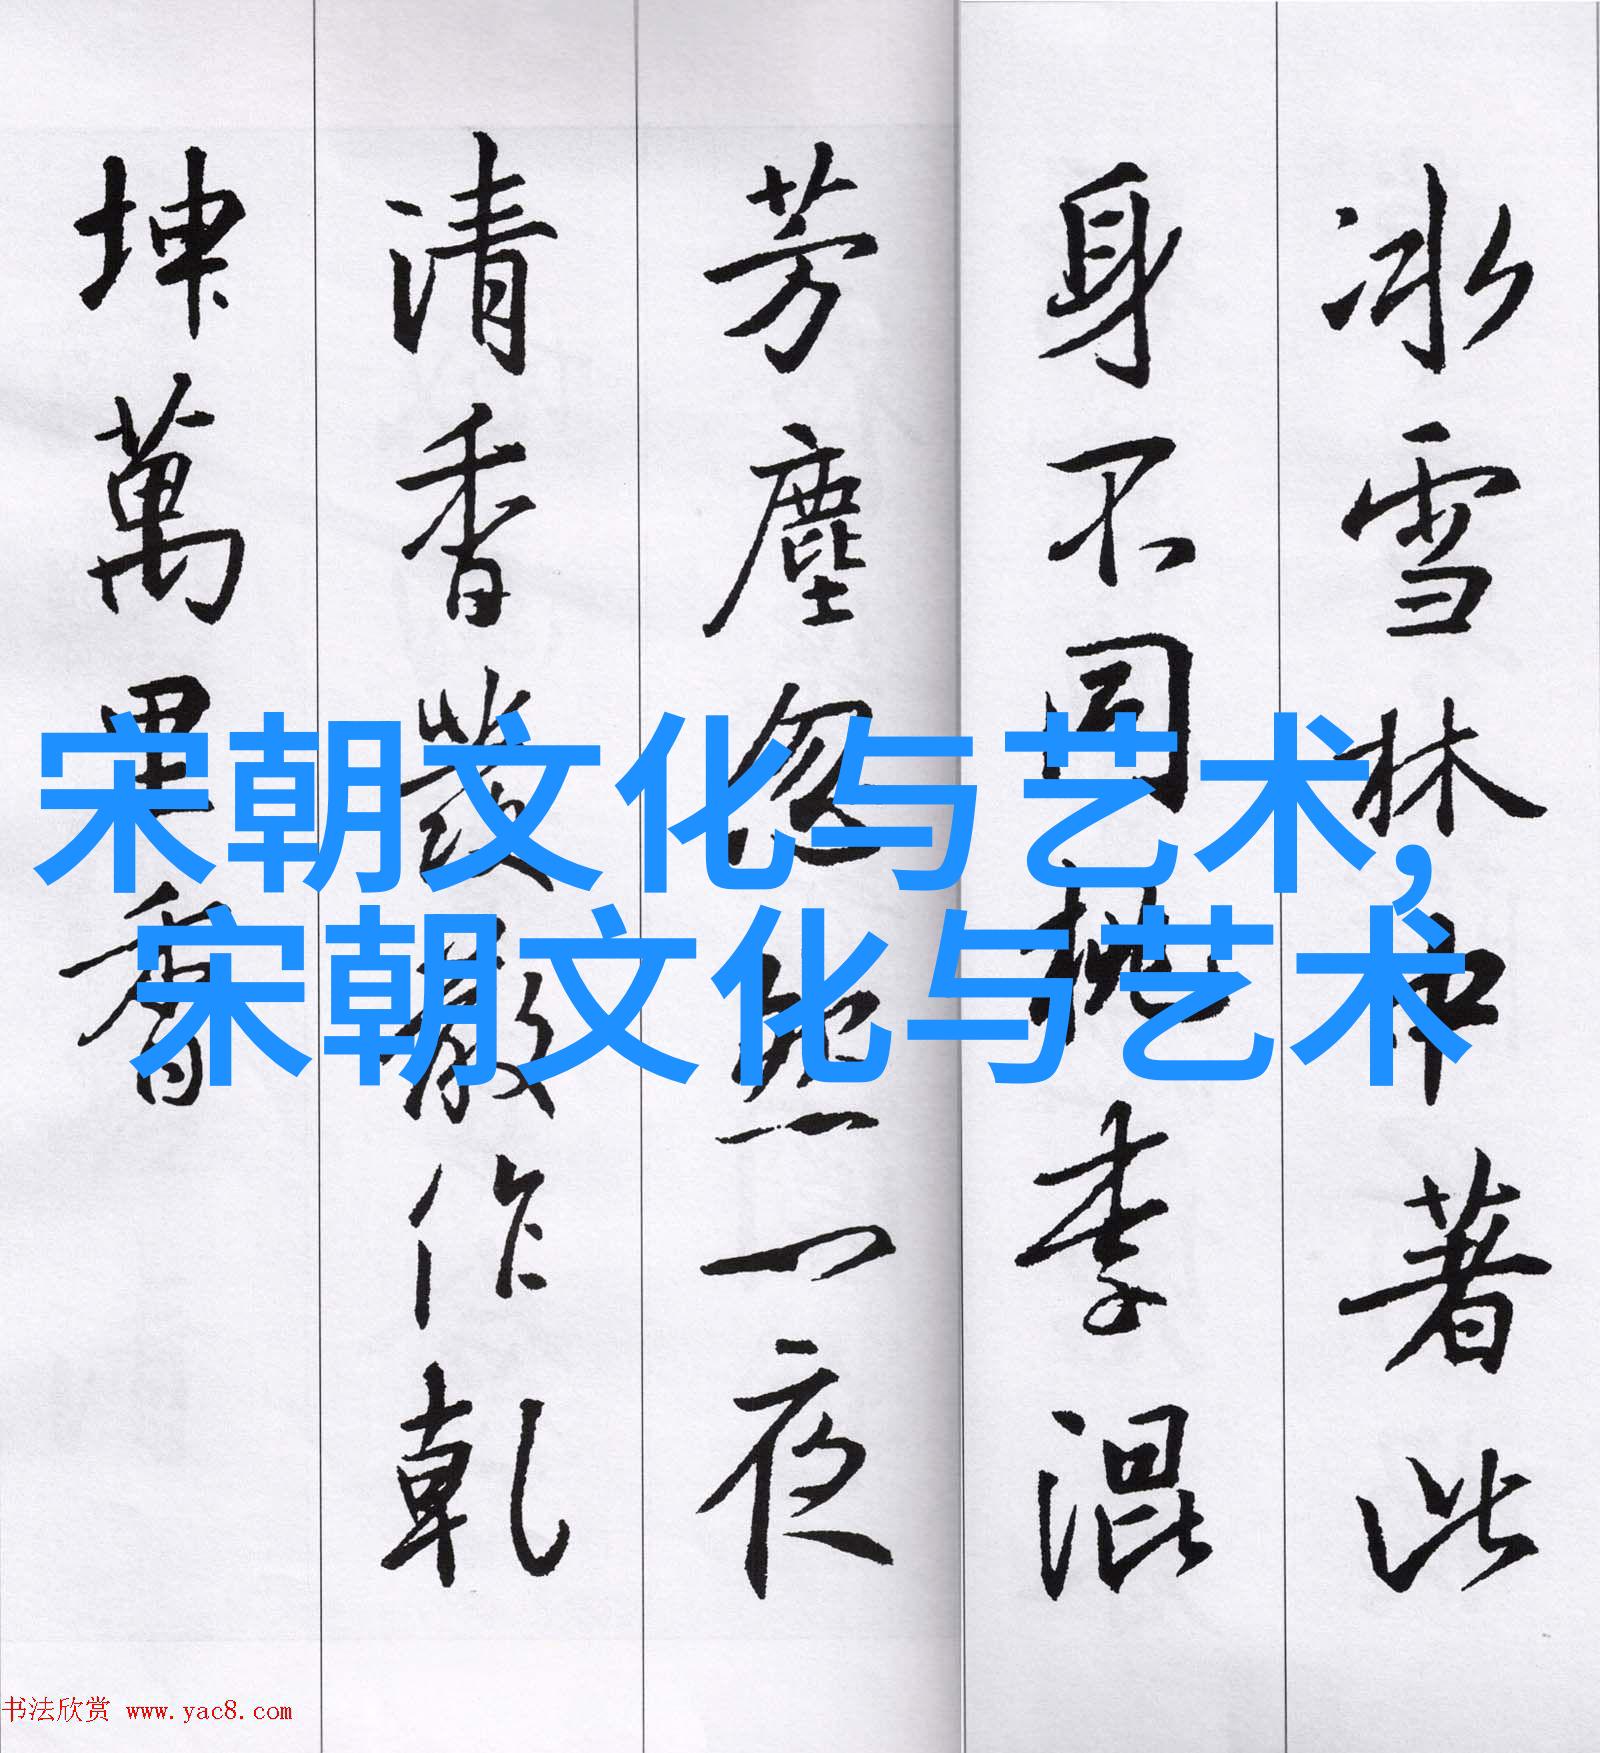 冰雪林中著此
身不同桃李混
芳塵忽然一夜
清香發散作乾
坤萬里香
宋朝文化与艺术,
宋朝文化与艺术
书法欣赏 www.yac8.com